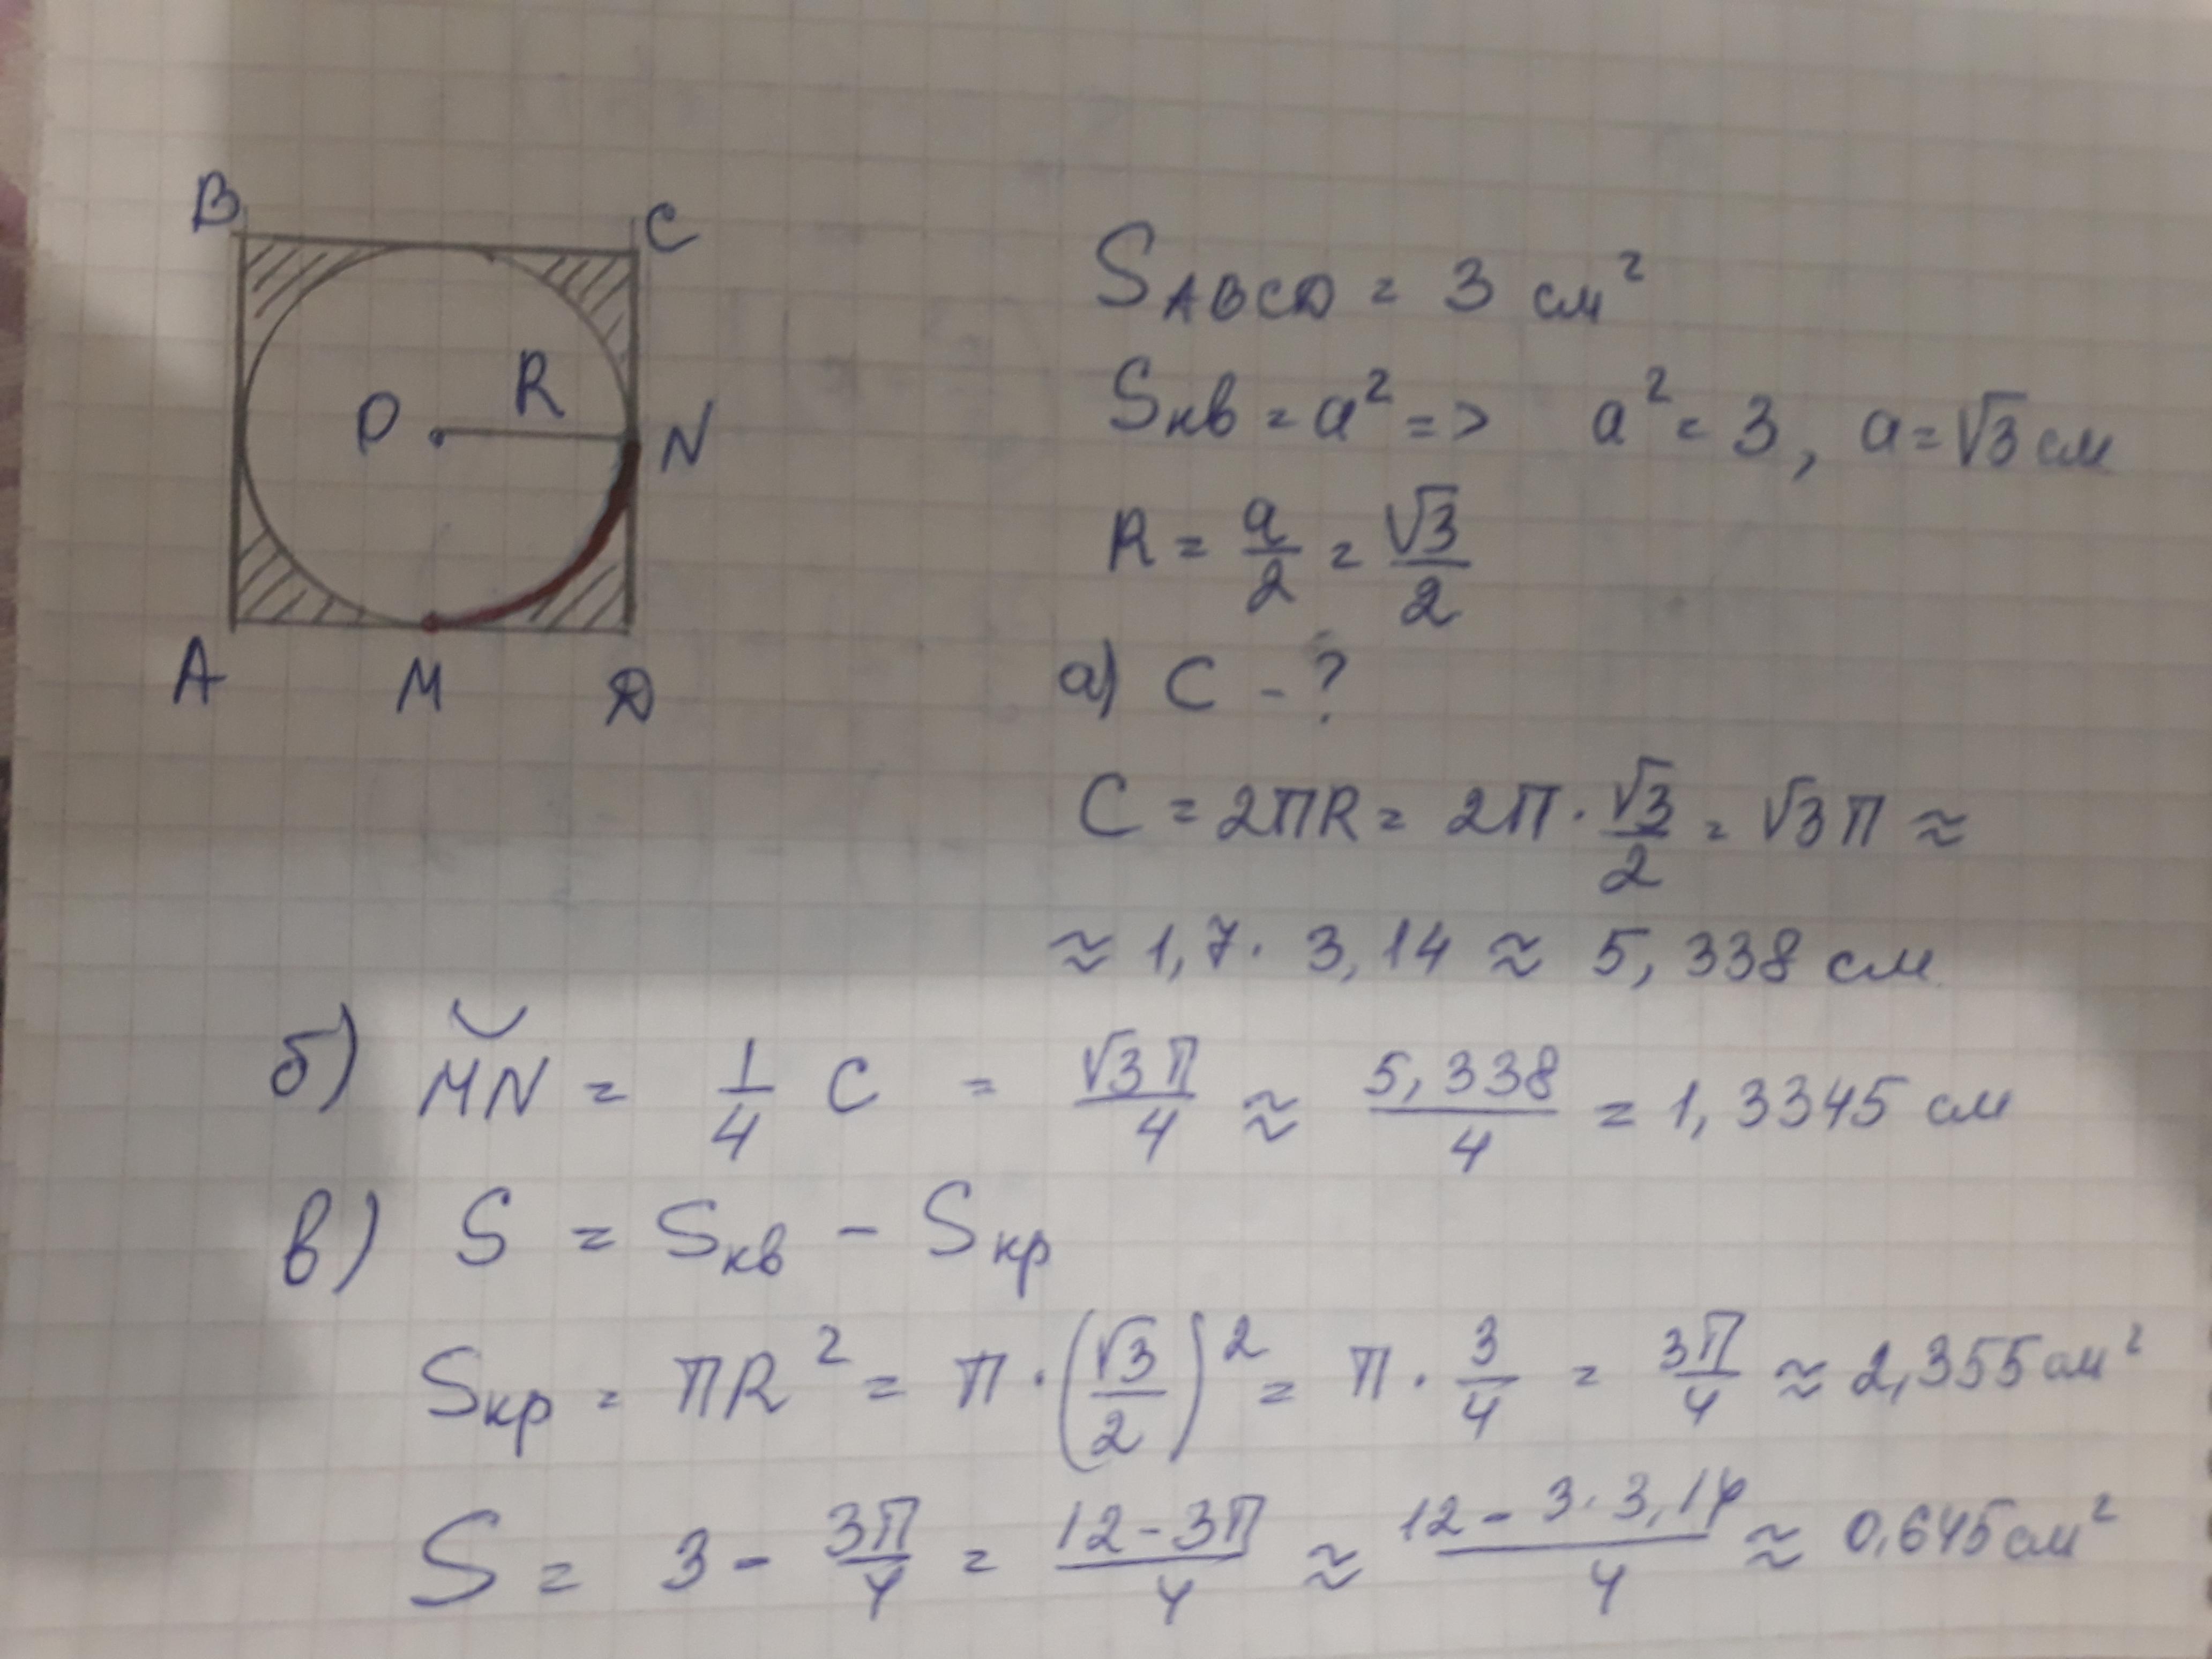 B
C
O
R
N
A
M
D
S ABCD = 3 см²
Sкв = a² => a² = 3, a = √3 см
R = a/2 = √3/2
а) C - ?
C = 2πR = 2π · √3/2 = √3π ≈
≈ 1,7 · 3,14 ≈ 5,338 см
б) ◡MN = 1/4 C = √3π/4 ≈ 5,338/4 = 1,3345 см
в) S = Sкв - Sкр
Sкр = πR² = π · (√3/2)² = π · 3/4 = 3π/4 ≈ 2,355 см²
S = 3 - 3π/4 = 12-3π/4 ≈ 12-3·3,14/4 ≈ 0,645 см²